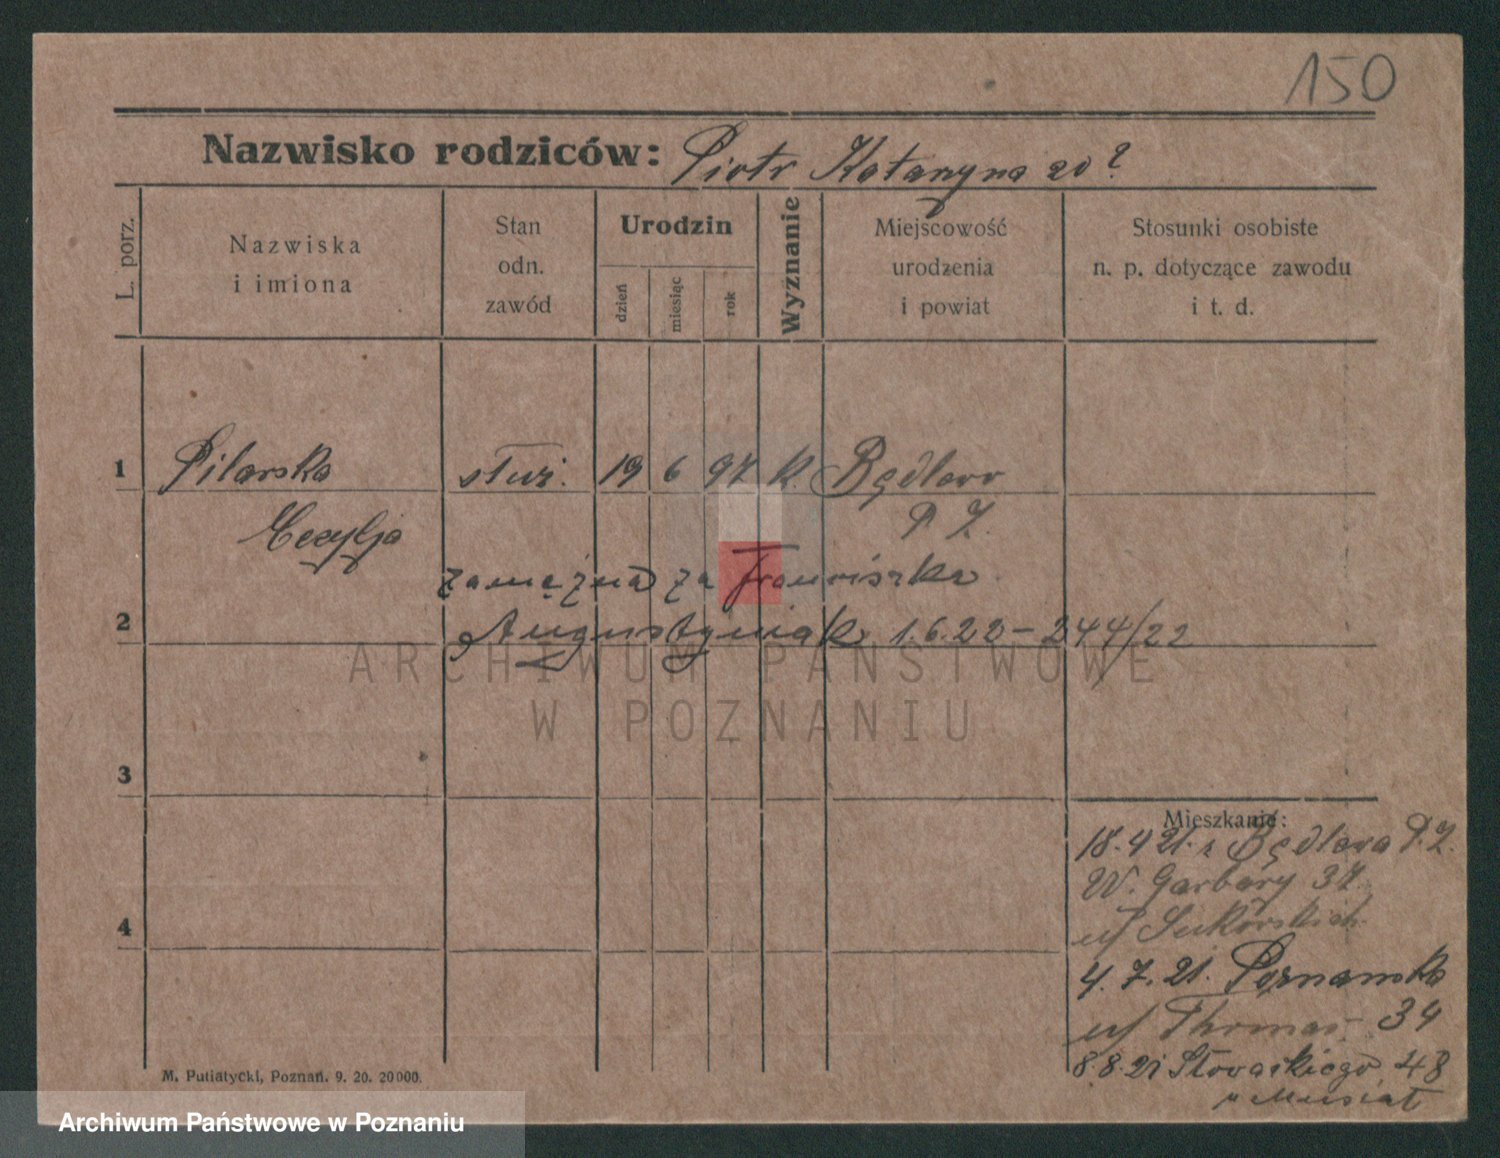 150
Nazwisko rodziców: Piotr Katarzyna zd?
L. porz.
Nazwiska
i imiona
Stan
odn.
zawód
Urodzin
dzień
miesiąc
rok
Wyznanie
Miejscowość
urodzenia
i powiat
Stosunki osobiste
n. p. dotyczące zawodu
i t. d.
1 Pilarska służ. 19 6 97 k. Będlewo
Cecylja P. Z.
zamężna za Franciszka
2 Augustyniak 1.6.22 – 244/22
ARCHIWUM PAŃSTWOWE
W POZNANIU
3
Mieszkanie:
18.4 21. z Będlewa P. Z.
W. Garbary 37
4
4. 7. 21. Poznańska
u/ Thomas 34
8.8.21 Słowackiego 48
u Musiał
M. Putiatycki, Poznań. 9. 20. 20000.
Archiwum Państwowe w Poznaniu